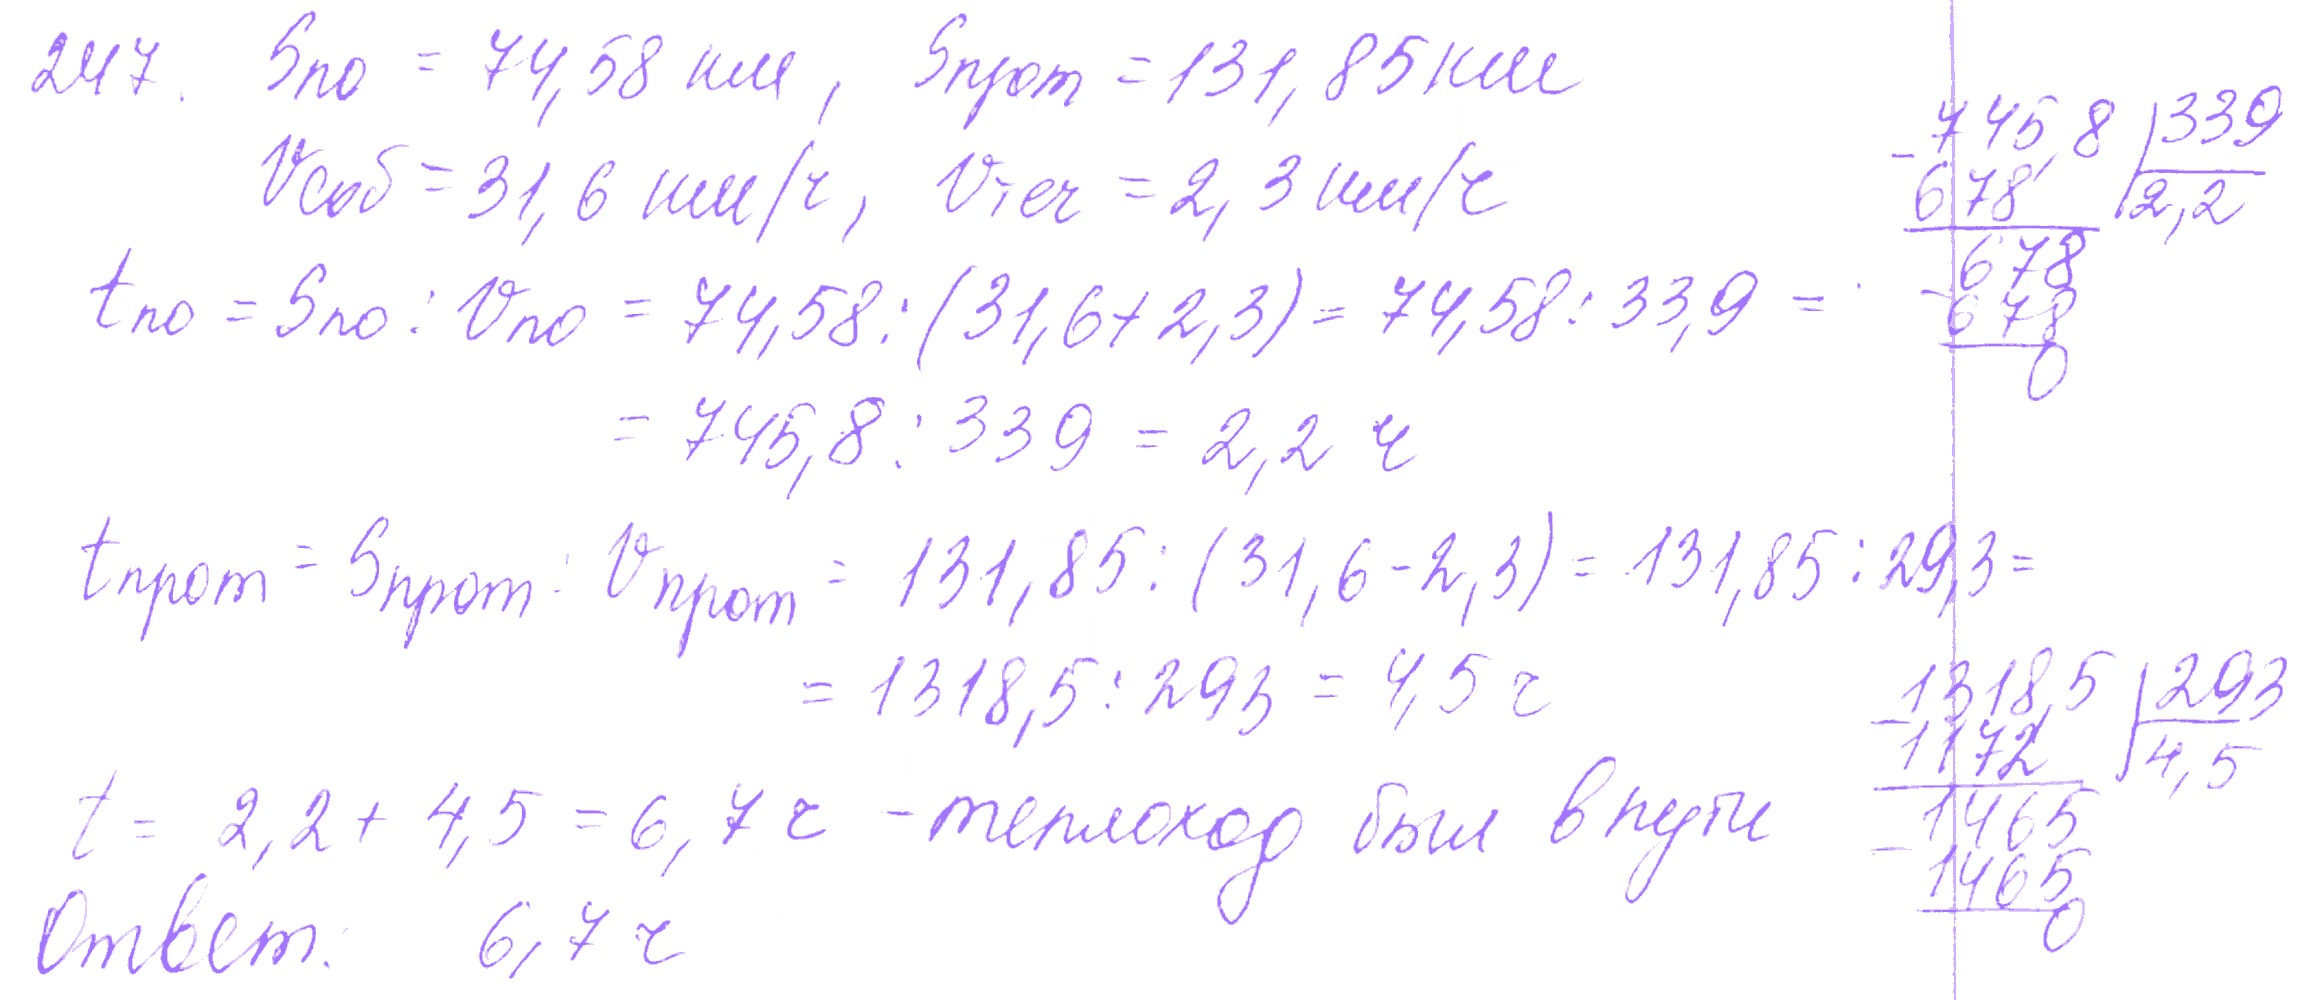 247. Sпо = 74,58 км, Sпрот = 131,85 км
Vсоб = 31,6 км/ч, Vтеч = 2,3 км/ч
tпо = Sпо : Vпо = 74,58 : (31,6 + 2,3) = 74,58 : 33,9 =
= 745,8 : 339 = 2,2 ч
tпрот = Sпрот : Vпрот = 131,85 : (31,6 - 2,3) = 131,85 : 29,3 =
= 1318,5 : 293 = 4,5 ч
t = 2,2 + 4,5 = 6,7 ч - теплоход был в пути
Ответ: 6,7 ч
- 745,8 | 339
678 | 2,2
- 678
678
0
- 1318,5 | 293
1172 | 4,5
- 1465
1465
0